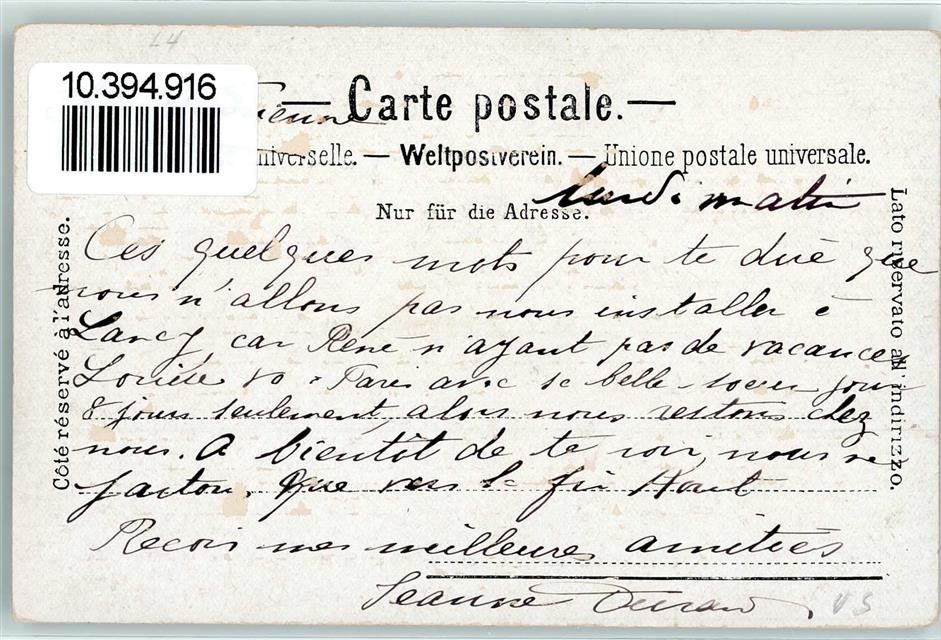 10.394.916
Carte postale.
Weltpostverein. — Unione postale universale.
Nur für die Adresse.
lundi matin
Côté réservé à l'adresse.
Lato riservato all' indirizzo.
Ces quelques mots pour te dire que
nous n'allons pas nous installer à
Lancy, car René n'ayant pas de vacances
Louise va à Paris avec sa belle-soeur pour
8 jours seulement, alors nous restons chez
nous. A bientôt de te voir, nous ne
partons que vers la fin Août
Reçois mes meilleures amitiés
Jeanne Durand